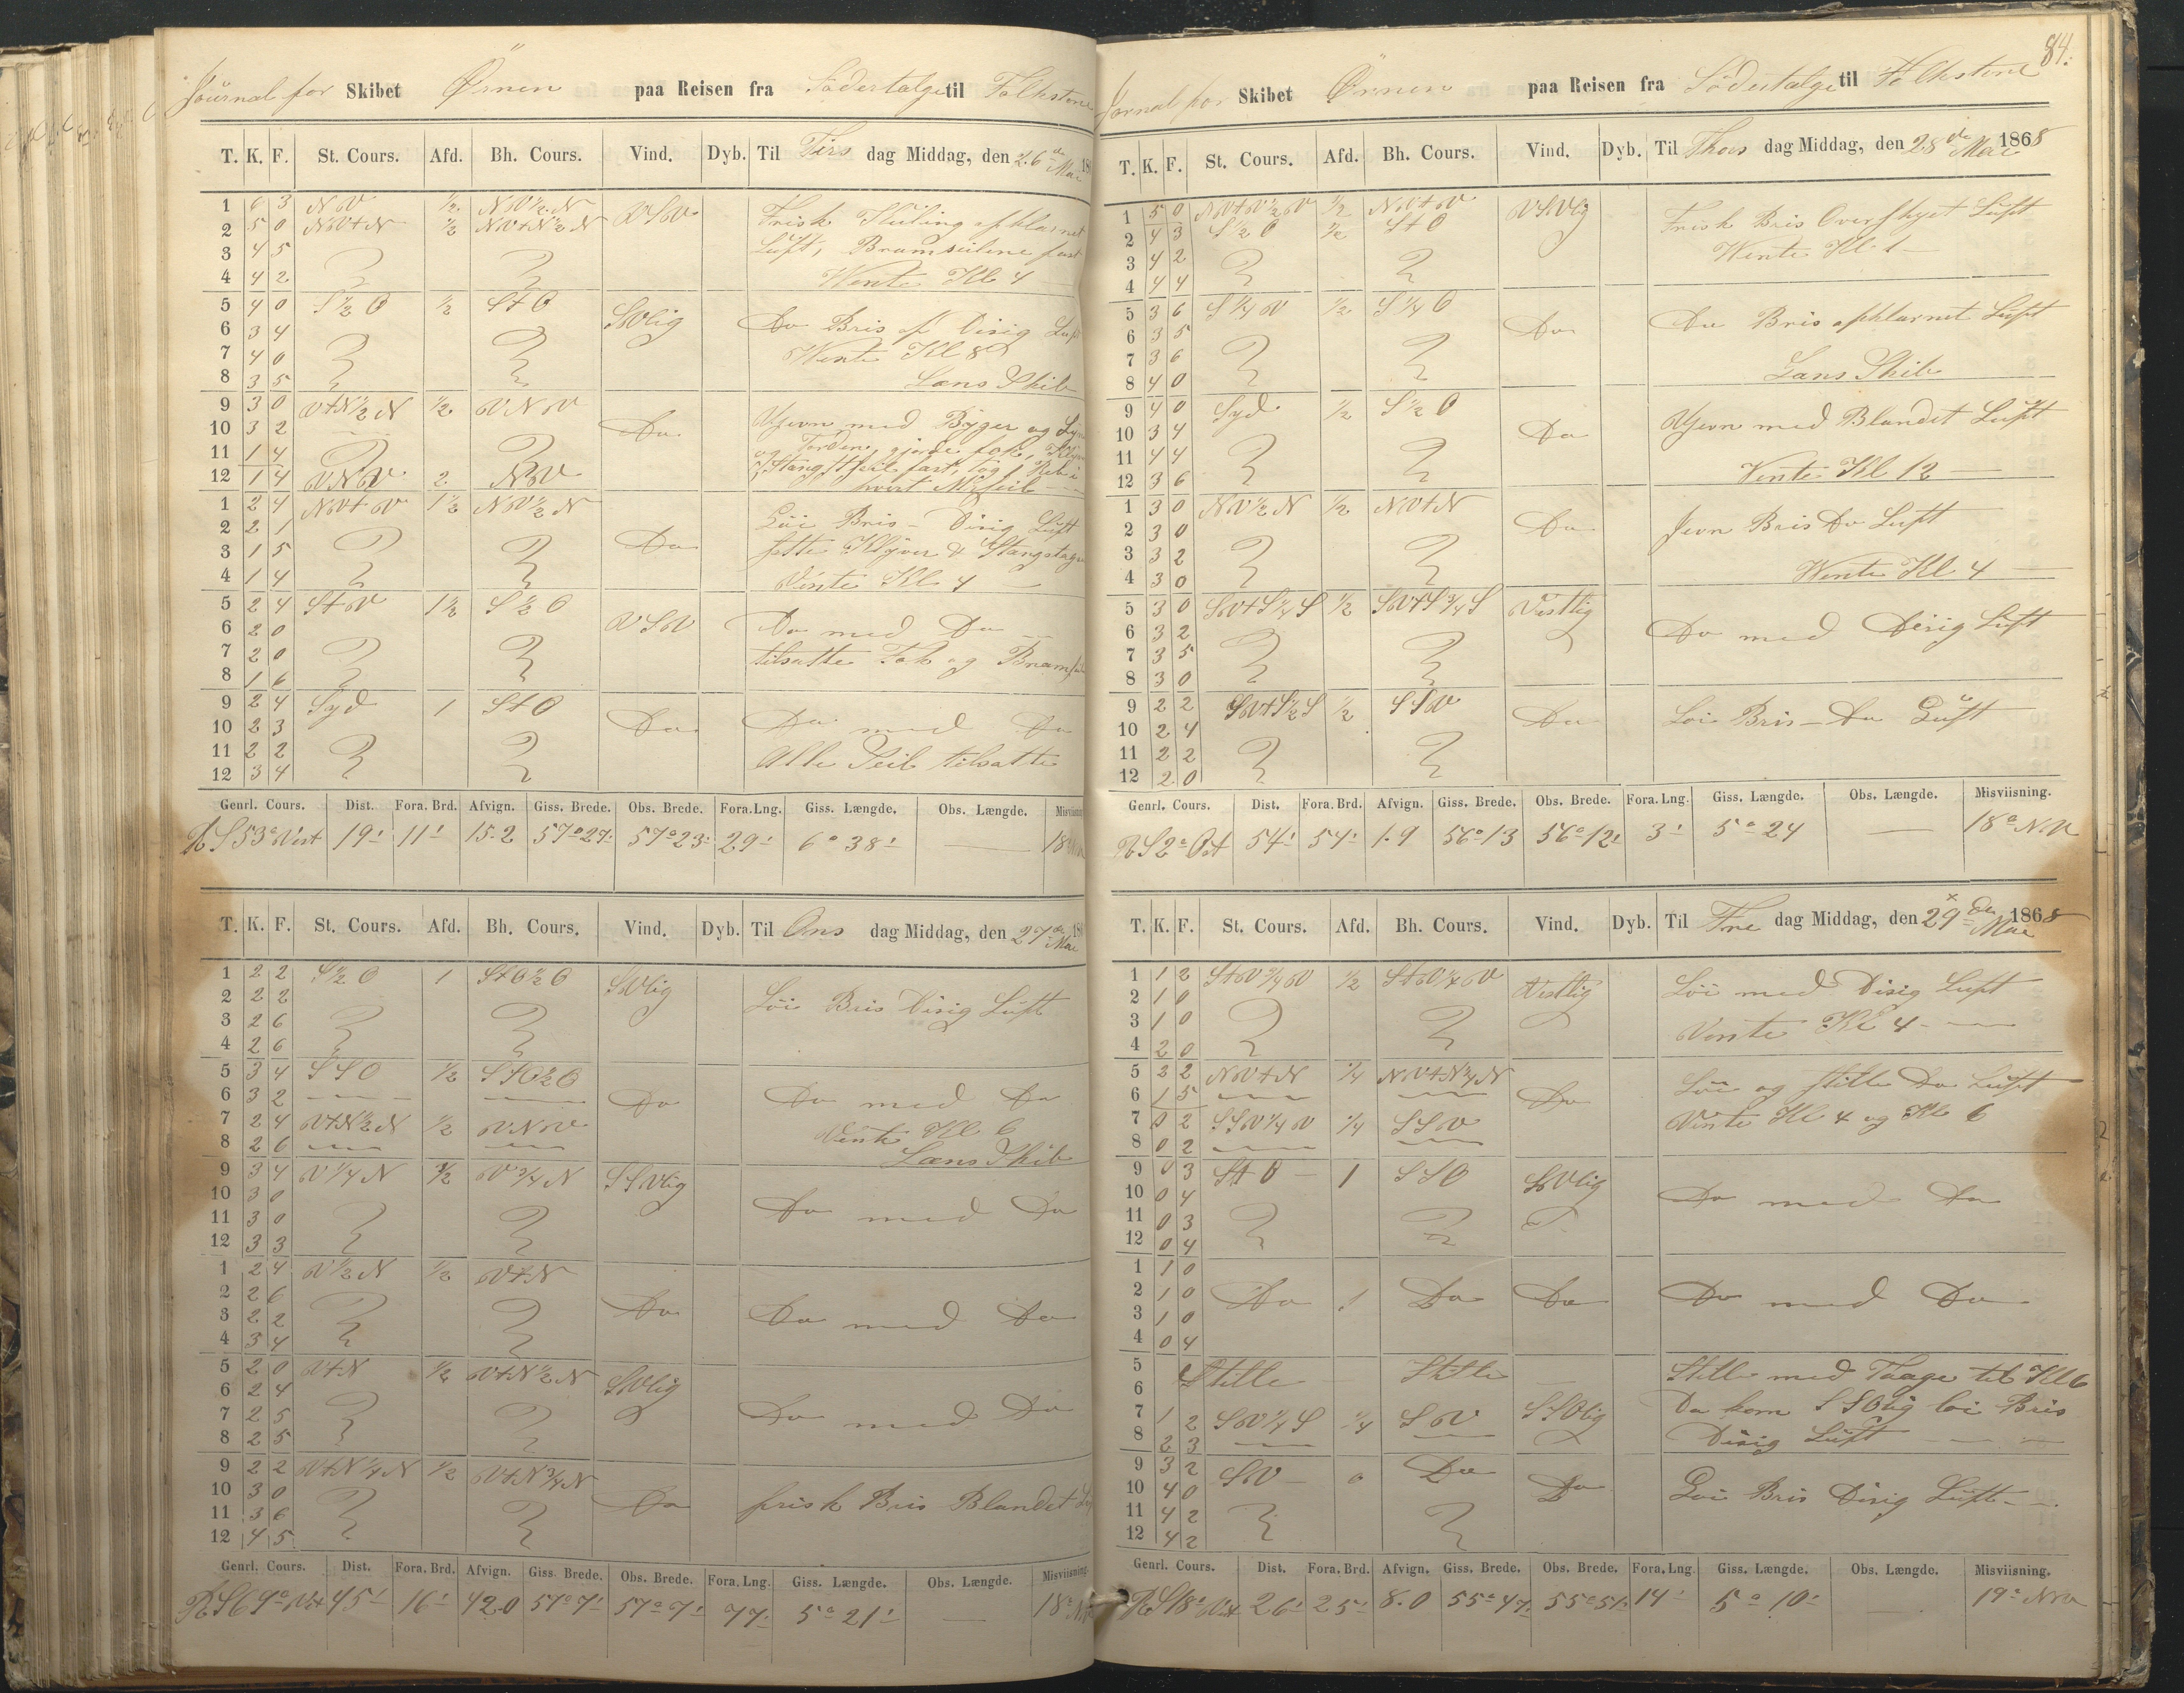 Journal for Skibet Ørnen paa Reisen fra Södertelge til Folkstone
T. K. F. St. Cours. Afd. Bh. Cours. Vind. Dyb. Til Tirs dag Middag, den 26 de Mai 18
1 6 3 NV ½ NV½N VSV Frisk Kuling opklarnet
2 5 0 NVtN ½ NVtN½N Luft, Bramseilene fast
3 4 5
4 4 2 Vente Kl 4
5 4 0 S½O ½ StO SVlig Do Bris af Disig Luft
6 3 4
7 4 0 Vente Kl 8
8 3 5 Læns Skib
9 3 0 VtN½N ½ VNV Do Ujevn med Byger og
10 3 2 og Torden, gjorde fok,
11 1 4
12 1 4 VNV 2 NV hvert
1 2 4 NVtV 1½ NV½N Do Löi Bris - Disig Luft
2 2 1
3 1 5 sette Klyver & Stangstag
4 1 4 Vente Kl 4
5 2 4 StV 1½ S½O VSV Do med Do
6 2 0
7 2 0 tilsatte Fok og Bram
8 1 6
9 2 4 Syd 1 StO Do Do med Do
10 2 3
11 2 2 Alle Seil tilsatte
12 3 4
Genrl. Cours. Dist. Fora. Brd. Afvign. Giss. Brede. Obs. Brede. Fora. Lng. Giss. Længde. Obs. Længde. Misviisning.
R S 53° Vest 19' 11' 15.2 57°27' 57°23' 29' 6°38' — 18°
T. K. F. St. Cours. Afd. Bh. Cours. Vind. Dyb. Til Ons dag Middag, den 27 de Mai 18
1 2 2 S½O 1 StO½O SVlig Löi Bris Disig Luft
2 2 2
3 2 6
4 2 6
5 3 4 SSO ½ SSO½O Do Do med Do
6 3 2
7 2 4 VtN½N ½ VNV Vente Kl 6
8 2 6 Læns Skib
9 3 4 V¼N ½ V¾N SSVlig Do med Do
10 3 0
11 3 0
12 3 3
1 2 4 V½N ½ VtN Do Do med Do
2 2 6
3 2 2
4 3 4
5 2 0 VtN ½ VtN½N SVlig Do med Do
6 2 4
7 2 5
8 2 5
9 2 2 VtN¼N ½ VtN¾N Do frisk Bris Blandet
10 3 0
11 3 6
12 4 5
Genrl. Cours. Dist. Fora. Brd. Afvign. Giss. Brede. Obs. Brede. Fora. Lng. Giss. Længde. Obs. Længde. Misviisning.
R S 69° Vest 45' 16' 42.0 57°7' 57°7' 77' 5°21' — 18°
84.
Jornal for Skibet Örnen paa Reisen fra Södertalge til Folkstone
T. K. F. St. Cours. Afd. Bh. Cours. Vind. Dyb. Til Thors dag Middag, den 28 de Mai 1868
1 5 0 NVtV½V ½ NVtV VSVlig Frisk Bris Overskyet Luft
2 4 3 S½O ½ StO Vente Kl 1
3 4 2
4 4 4
5 3 6 S¼V ½ S¼O Do Do Bris opklarnet Luft
6 3 5
7 3 6 Læns Skib
8 4 0
9 4 0 Syd ½ S½O Do Ujevn med Blandet Luft
10 3 4
11 4 4 Vente Kl 12
12 3 6
1 3 0 NV½N ½ NVtN Do Jevn Bris Do Luft
2 3 0
3 3 2
4 3 0 Vente Kl 4
5 3 0 SVtS¼S ½ SVtS¾S Vestlig Do med Disig Luft
6 3 2
7 3 5
8 3 0
9 2 2 SVtS½S ½ SSV Do Löi Bris - Do Luft
10 2 4
11 2 2
12 2 0
Genrl. Cours. Dist. Fora. Brd. Afvign. Giss. Brede. Obs. Brede. Fora. Lng. Giss. Længde. Obs. Længde. Misviisning.
R S 2° Ost 54' 54' 1.9 56°13 56°12' 3' 5°24 — 18° N.V
T. K. F. St. Cours. Afd. Bh. Cours. Vind. Dyb. Til Fre dag Middag, den 29 de Mai 1868
1 1 2 StV¾V ½ StV¼V Vestlig Löi med Disig Luft
2 1 0
3 1 0 Vente Kl 4
4 2 0
5 2 2 NVtN ¼ NVtN¼N Do Löi og stille Do Luft
6 1 5
7 0 2 SSV¼V ¼ SSV Vente Kl 4 og Kl 6
8 0 2
9 0 3 StO 1 SSO SVlig Do med Do
10 0 4
11 0 3
12 0 4
1 1 0
2 1 0 Do 1 Do Do Do med Do
3 1 0
4 0 4
5 Stille Stille Stille med Taage til Kl 6
6 Da kom SSOlig löi Bris
7 1 2 SV¼S ¼ SV SSOlig
8 2 3 Disig Luft
9 3 2 SV 0 Do Do Löi Bris Disig Luft
10 4 0
11 4 2
12 4 2
Genrl. Cours. Dist. Fora. Brd. Afvign. Giss. Brede. Obs. Brede. Fora. Lng. Giss. Længde. Obs. Længde. Misviisning.
R S 18° Vest 26' 25' 8.0 55°47' 55°51' 14' 5°10' — 19° NV